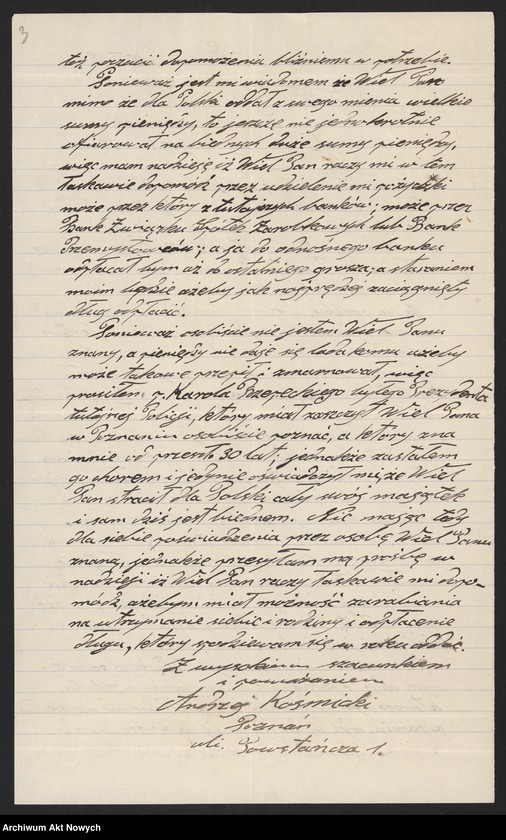 3
też poczuć dopomożenia bliźniemu w potrzebie.
Ponieważ jest mi wiadomem że Wiel. Pan
mimo że dla Polski oddał z swego mienia wielkie
sumy pieniężne, to jeszcze nie jednokrotnie
ofiarował na biednych duże sumy pieniężne,
więc mam nadzieję iż Wiel Pan raczy mi w tem
łaskawie dopomódz przez udzielenie mi pożyczki
może przez który z tutajszych banków; może przez
Bank Związku Spółek Zarobkowych lub Bank
Przemysłowców; a ja do odnośnego banku
odpłacał bym aż do ostatniego grosza; a staraniem
moim będzie ażeby jak najprędzej zaciągnięty
dług odpłacić.
Ponieważ osobiście nie jestem Wiel Panu
znany, a pieniędzy nie daje się ladakomu ażeby
może takowe przepił i zmarnował, więc
prosiłem p. Karola Rzepeckiego byłego Prezydenta
tutejszej Policji, który miał zaszczyt Wiel Pana
w Poznaniu osobiście poznać, a który zna
mnie od przeszło 30 lat; jednakże zastałem
go chorem i jedynie oświadczył mi, że Wiel
Pan stracił dla Polski cały swój majątek
i sam dziś jest biednem. Nie mając tedy
dla siebie poświadczenia przez osobę Wiel Panu
znaną, jednakże przesyłam mą prośbę w
nadzieji iż Wiel Pan raczy łaskawie mi dopo-
módz, ażebym miał możność zarabiania
na utrzymanie siebie i rodziny i odpłacenie
długu, który spodziewam się w roku oddać.
Z wysokiem szacunkiem
i poważaniem
Andrzej Kośmicki
Poznań
ul. Powstańcza 1.
Archiwum Akt Nowych